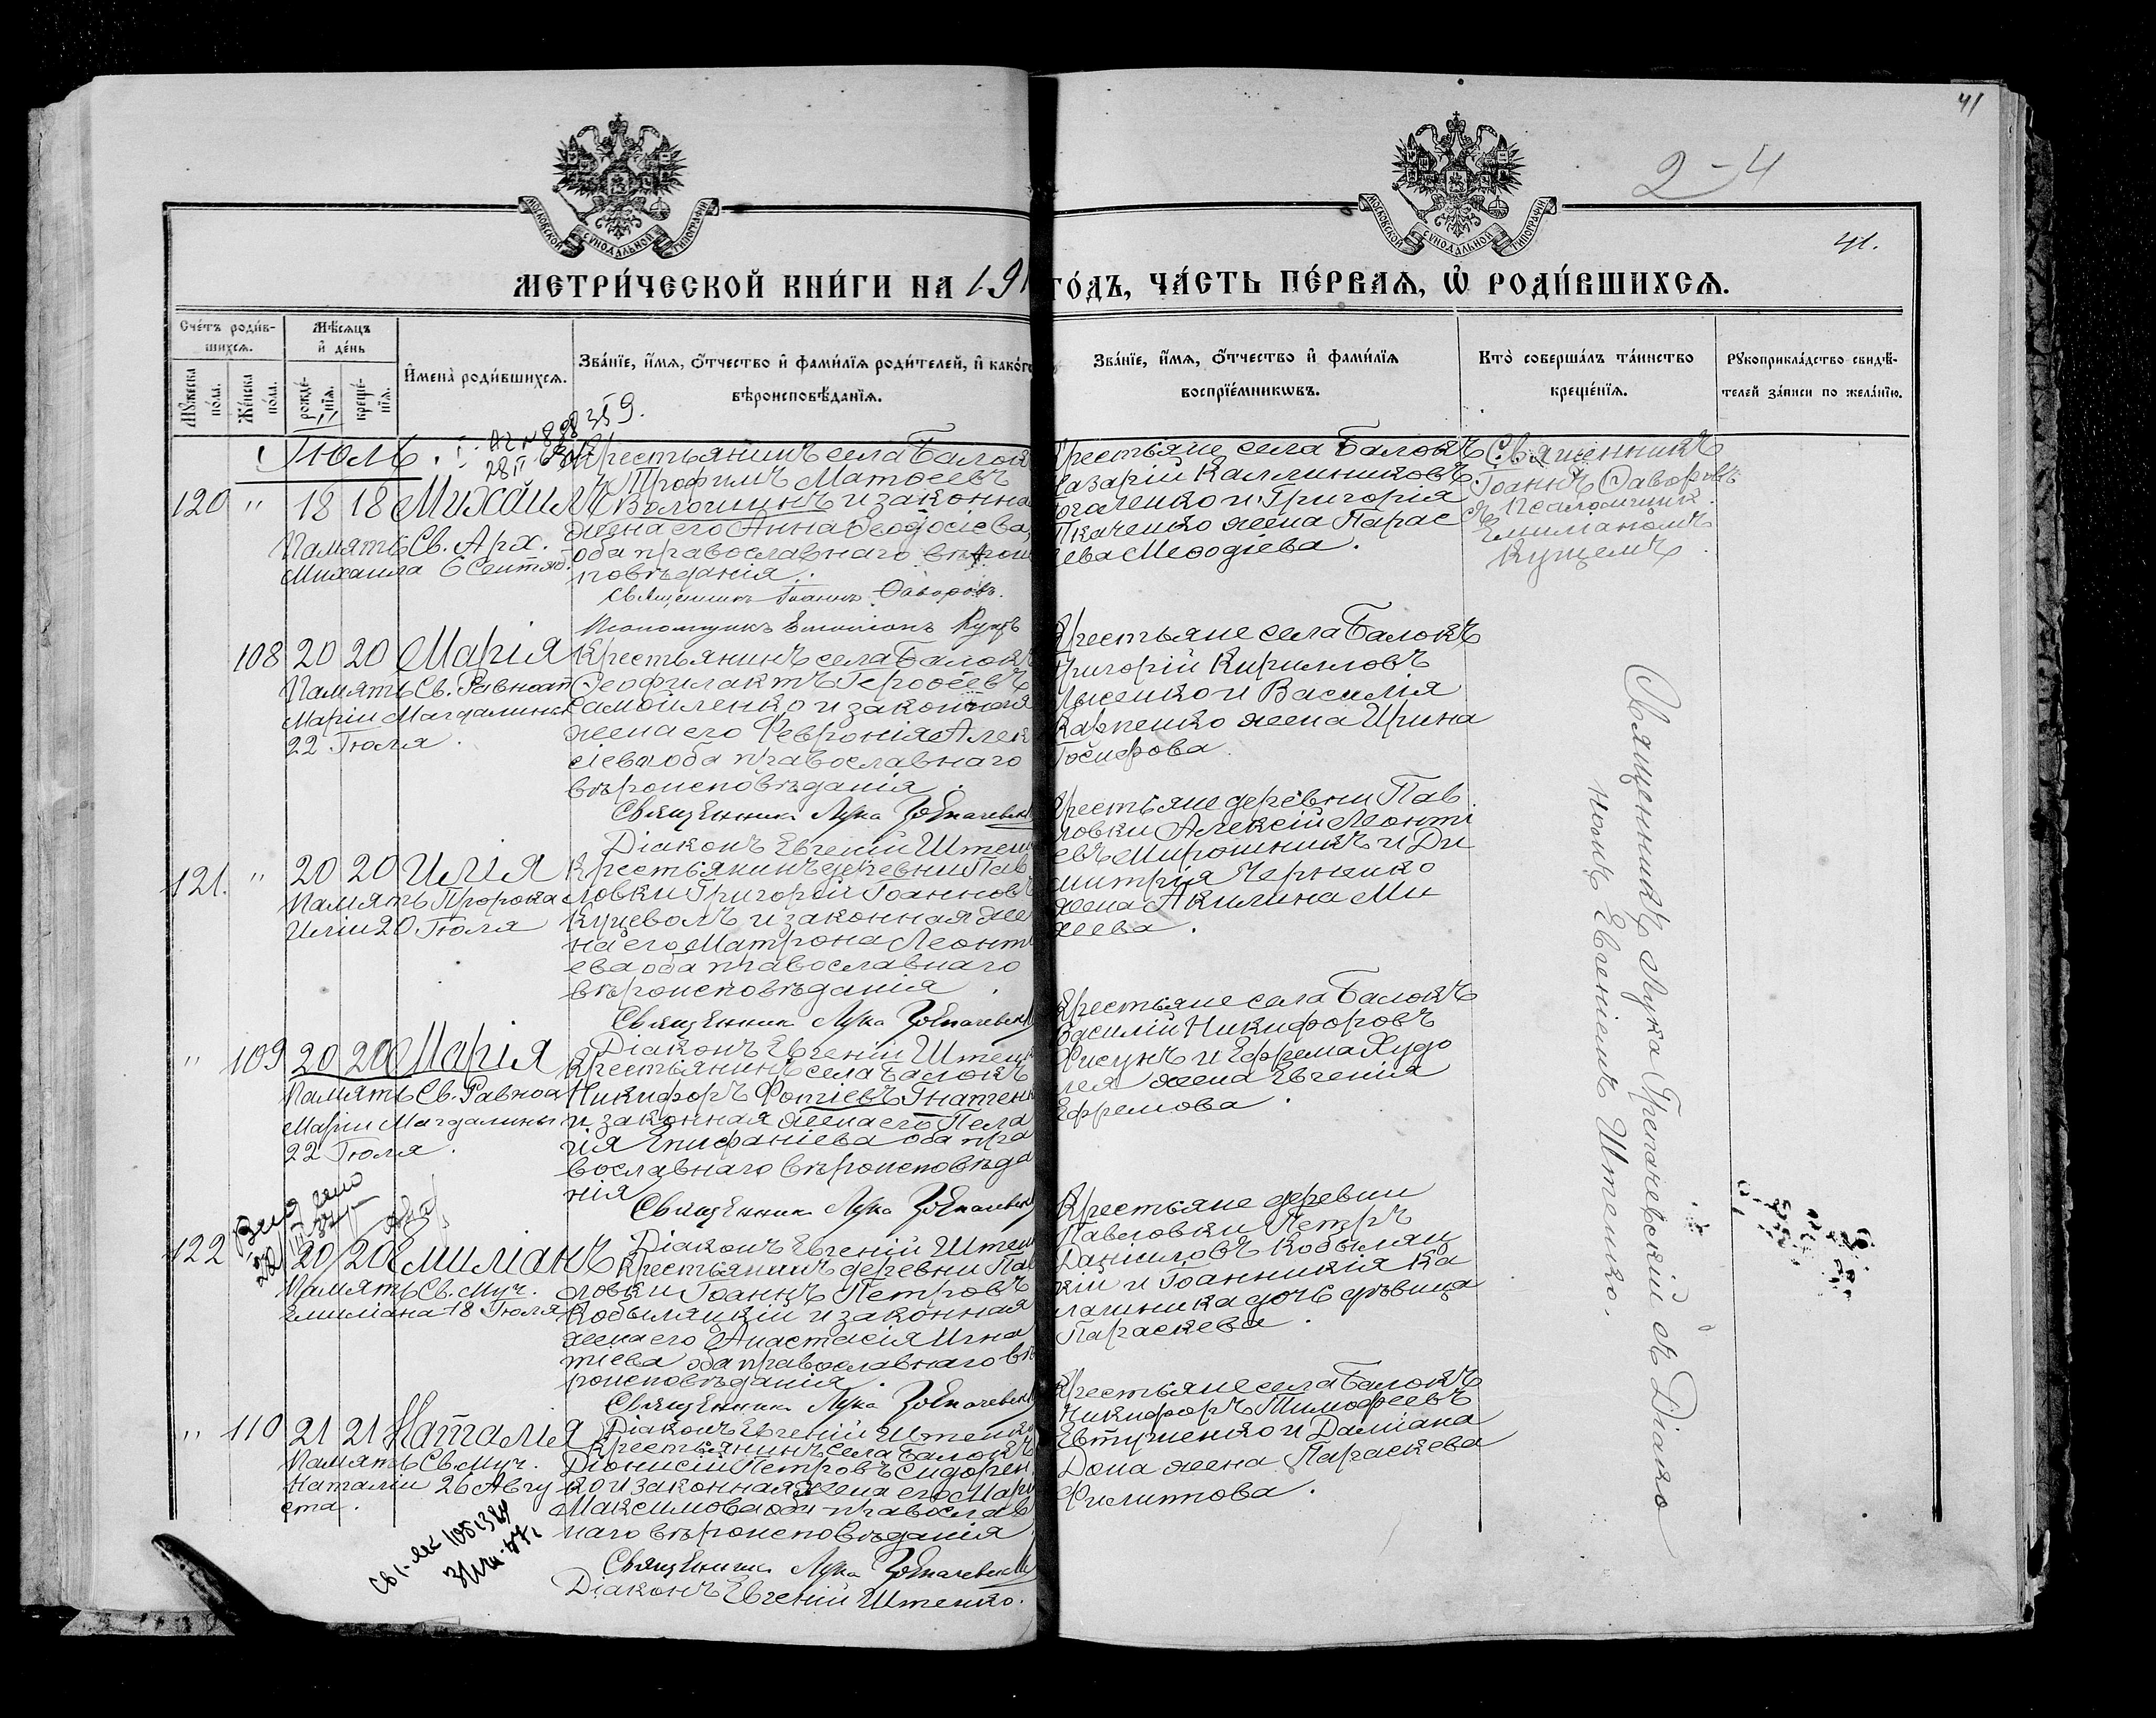 41
2-4
41.
МОСКОВСКОЙ СѴНОДАЛЬНОЙ ТИПОГРАФІИ
МОСКОВСКОЙ СѴНОДАЛЬНОЙ ТИПОГРАФІИ
МЕТРИ́ЧЕСКОЙ КНИ́ГИ НА 191
ГО́ДЪ, ЧА́СТЬ ПЕ́РВАѦ, Ѡ҆ РОДИ́ВШИХСѦ.
Сче́тъ роди́в-
шихсѧ.
Мꙋ́жеска по́ла.
Же́нска по́ла.
Мѣ́сѧцъ
и҆ де́нь
рожде́-нїѧ.
креще́-нїѧ.
И҆мена̀ роди́вшихсѧ.
Зва́нїе, и҆́мѧ, ѻ҆́тчество и҆ фами́лїѧ роди́телей, и҆ како́гѡ
вѣроисповѣ́данїѧ.
Зва́нїе, и҆́мѧ, ѻ҆́тчество и҆ фами́лїѧ
воспрїе́мникѡвъ.
Кто̀ соверша́лъ та́инство
креще́нїѧ.
Рꙋкоприкла́дство свидѣ́-
телей за́писи по жела́нїю.
Іюль.
120 " 18 18 Михаилъ
Память Св. Арх.
Михаила 6 Сентяб.
Крестьянинъ села Балок
Трофимъ Матѳеевъ
Волошинъ и законна
жена его Анна Ѳеодосіева,
оба православнаго вѣрои
повѣданія.
Священникъ Іоаннъ Ѳаворовъ.
Псаломщикъ Емиліанъ Куцъ
Крестьяне села Балокъ
Назарій Каллиниковъ
и Григорія
Ткаченко жена Парас
ева Меѳодіева.
Священникъ
Іоаннъ Ѳаворовъ
съ Псаломщик.
Емиліаномъ
Куцемъ
108 20 20 Марія
Память Св. Равноап
Маріи Магдалины
22 Іюля.
Крестьянинъ села Балокъ
Ѳеофилактъ Героѳеевъ
Самойленко и законная
жена его Февронія Алек
сіева оба православнаго
вѣроисповѣданія.
Священникъ Лука
Діаконъ Евгеній Штеп
Крестьяне села Балокъ
Григорій Кирилловъ
Лысенко и Василія
Карпенко жена Ирина
Іосифова.
121. " 20 20 Илія
Память Пророка
Иліи 20 Іюля
Крестьянинъ деревни Пав
ловки Григорій Іоанновъ
Куцеволъ и законная же
на его Матрона Леонт
ева оба православнаго
вѣроисповѣданія.
Священникъ Лука
Діаконъ Евгеній Штеп
Крестьяне деревни Пав
ловки Алексій Леонті
евъ Мирошникъ и Ди
митрія Черненко
жена Акилина Ми
хеева.
" 109 20 20 Марія
Память Св. Равноа
Маріи Магдалины
22 Іюля.
Крестьянинъ села Балокъ
Никифоръ Фотіевъ Гнатенк
и законная жена его Пела
гія Епифаніева оба пра
вославнаго вѣроисповѣда
нія
Священникъ Лука
Діаконъ Евгеній Штеп
Крестьяне села Балокъ
Василій Никифоровъ
Фисунъ и Ефрема Худо
лея жена Евгенія
Ефремова.
122 20 20 Емиліанъ
Память Св. Муч.
Емиліана 18 Іюля
Крестьянинъ деревни Па
ловки Іоаннъ Петровъ
Кобыляцкій и законная
жена его Анастасія Игна
тіева оба православнаго вѣ
роисповѣданія.
Священникъ Лука
Діаконъ Евгеній Штепко
Крестьяне деревни
Павловки Петръ
Даніиловъ Кобыляц
кій и Іоанникія Ка
лашника дочь дѣвица
Параскева.
" 110 21 21 Наталія
Память Св. Муч.
Наталіи 26 Авгу
ста.
Крестьянинъ села Балокъ
Діонисій Петровъ Сидорен
ко и законная жена его Мар
Максимова оба православ
наго вѣроисповѣданія
Священникъ Лука
Діаконъ Евгеній Штепко.
Крестьяне села Балокъ
Никифоръ Тимофеевъ
Евтушенко и Даміана
Дона жена Параскева
Филиппова.
Священникъ Лука съ Діако
номъ Евгеніемъ Штепко.